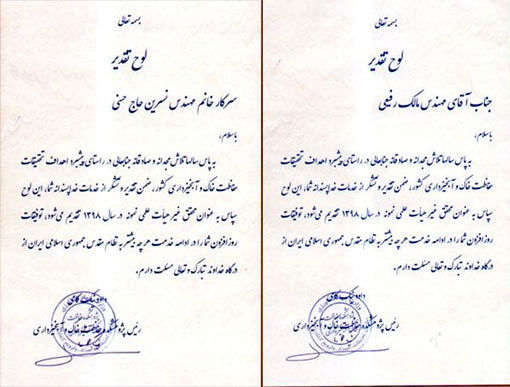 بسمه تعالی
لوح تقدیر
جناب آقای مهندس مالک رفیعی
با سلام،
به پاس سالها تلاش مجدانه و صادقانه جنابعالی در راستای پیشبرد اهداف تحقیقات
حفاظت خاک و آبخیزداری کشور، ضمن تقدیر و تشکر از خدمات خداپسندانه شما، این لوح
سپاس به عنوان محقق غیر هیأت علمی نمونه در سال ۱۳۹۸ تقدیم می‌شود، توفیقات
روزافزون شما را در ادامه خدمت هر چه بیشتر به نظام مقدس جمهوری اسلامی ایران از
درگاه خداوند تبارک و تعالی مسئلت دارم.
داود نیک کامی
رئیس پژوهشکده حفاظت خاک و آبخیزداری
بسمه تعالی
لوح تقدیر
سرکار خانم مهندس نسرین حاج حسنی
با سلام،
به پاس سالها تلاش مجدانه و صادقانه جنابعالی در راستای پیشبرد اهداف تحقیقات
حفاظت خاک و آبخیزداری کشور، ضمن تقدیر و تشکر از خدمات خداپسندانه شما، این لوح
سپاس به عنوان محقق غیر هیأت علمی نمونه در سال ۱۳۹۸ تقدیم می‌شود، توفیقات
روزافزون شما را در ادامه خدمت هر چه بیشتر به نظام مقدس جمهوری اسلامی ایران از
درگاه خداوند تبارک و تعالی مسئلت دارم.
داود نیک کامی
رئیس پژوهشکده حفاظت خاک و آبخیزداری